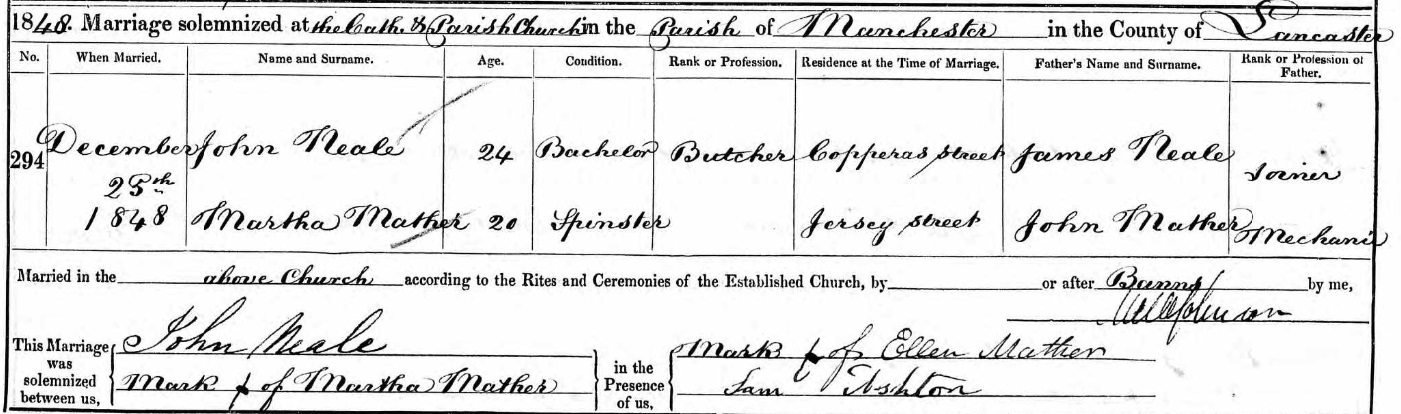 1848. Marriage solemnized at the Cath. & Parish Church in the Parish of Manchester in the County of Lancaster
No. When Married. Name and Surname. Age. Condition. Rank or Profession. Residence at the Time of Marriage. Father's Name and Surname. Rank or Profession of Father.
294 December John Neale 24 Bachelor Butcher Copperas Street James Neale Joiner
25th
1848 Martha Mather 20 Spinster Jersey street John Mather Mechanic
Married in the above Church according to the Rites and Ceremonies of the Established Church, by or after Banns by me,
Johnson
This Marriage was solemnized between us, John Neale
Mark x of Martha Mather
in the Presence of us, Mark x of Ellen Mather
Sam Ashton